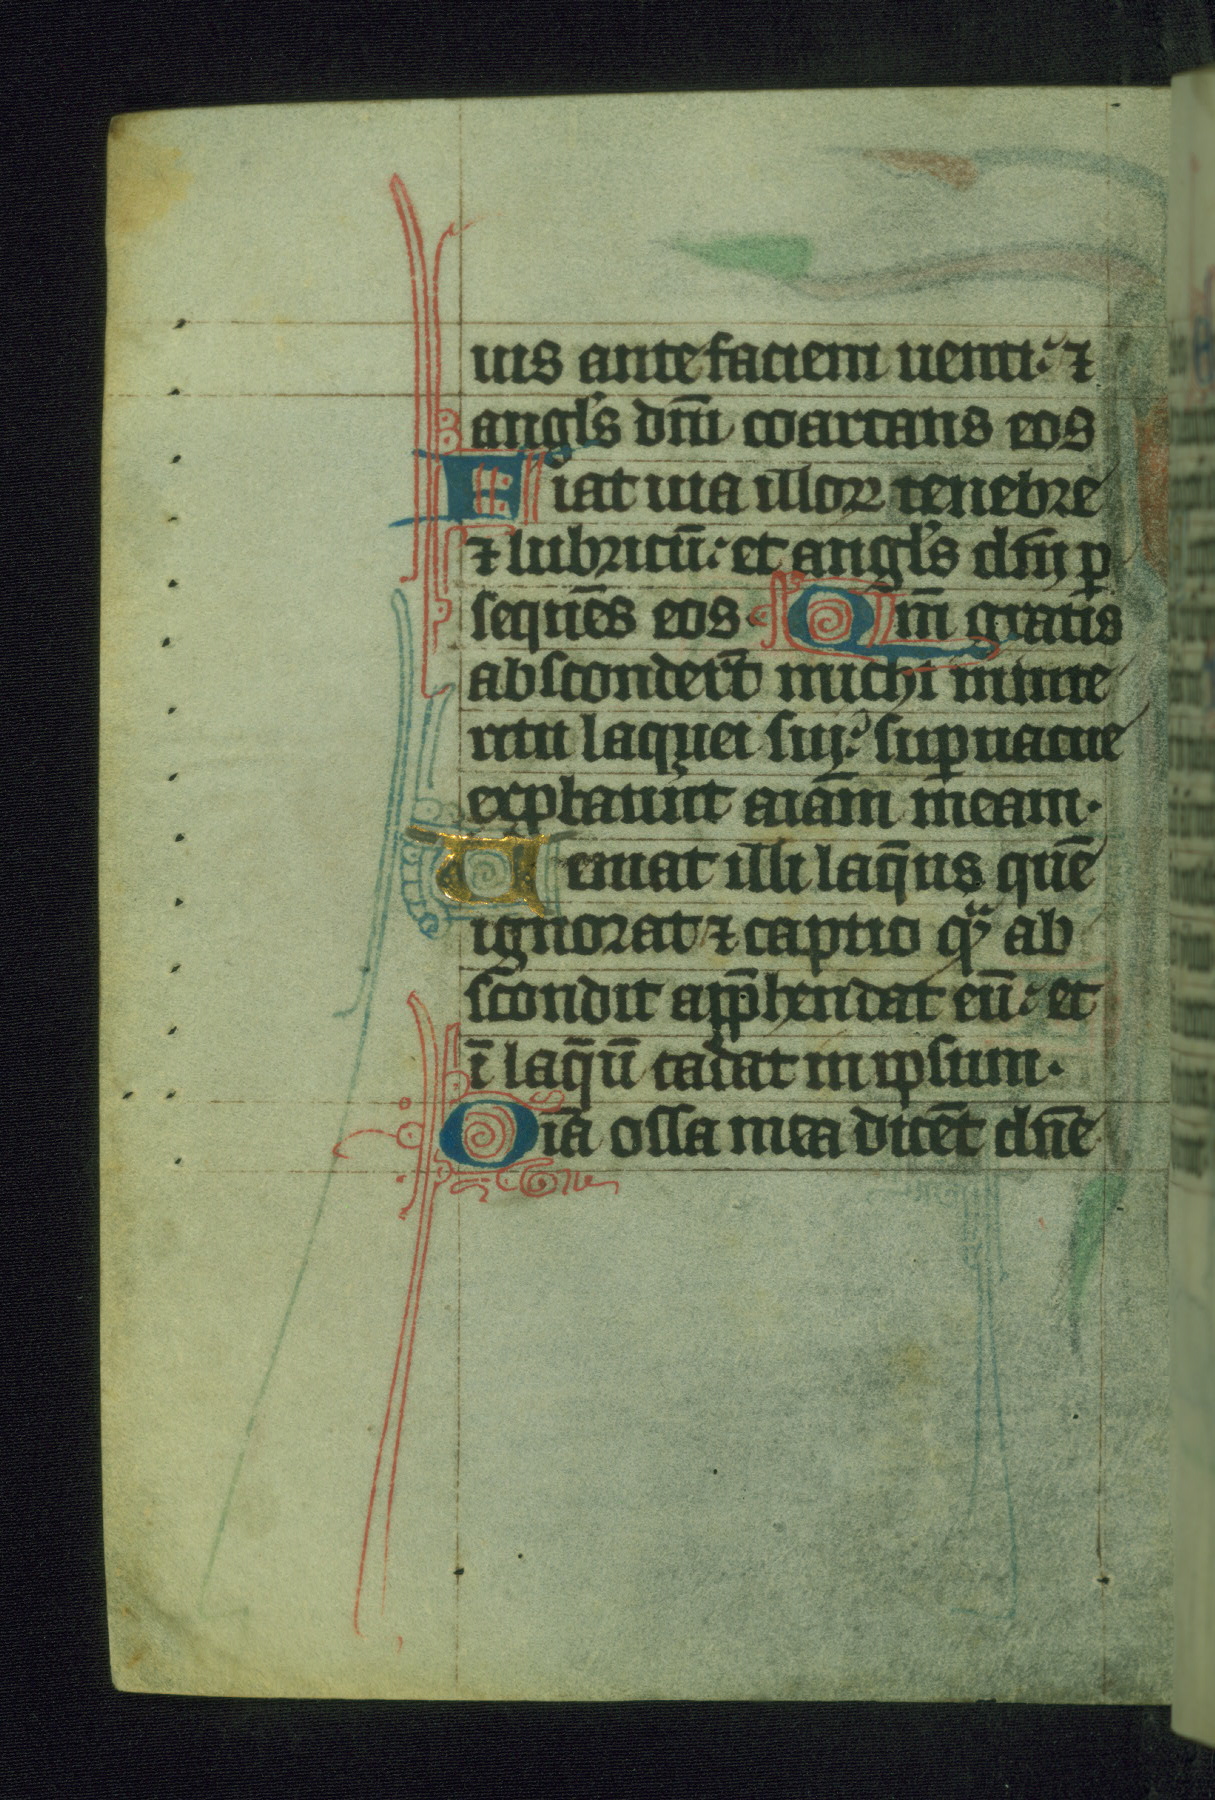 uis ante faciem uenti: ⁊
angl's dñi coartans eos
Fiat uia illoꝝ tenebre
⁊ lubricū: et angl's dñi ꝑ
sequēs eos. Qm̄ gratis
absconderūt michi inte
ritū laquei suj: suꝑuacue
exprobauūt aīam meam.
Veniat illi laq̄us quē
ignorat ⁊ captio qᵃ̄ ab
scondit app̄hendat eū: et
ī laq̄ū cadat in ipsum.
Oīa ossa mea dicēt dn̄e